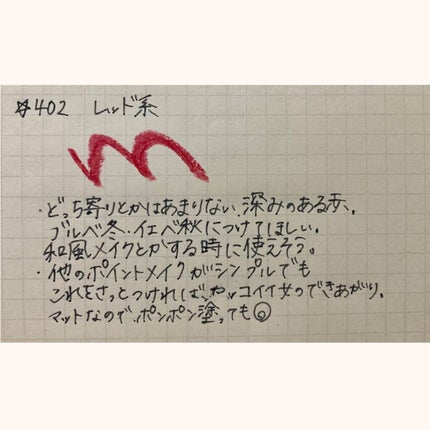 ☆402 レッド系
・どっち寄りとかはあまりない、深みのある赤。
ブルベ冬、イエベ秋につけてほしい。
和風メイクとかする時に使えそう。
・他のポイントメイクがシンプルでも
これをさっとつければ、カッコイイ女のできあがり。
マットなので、ポンポン塗っても◎